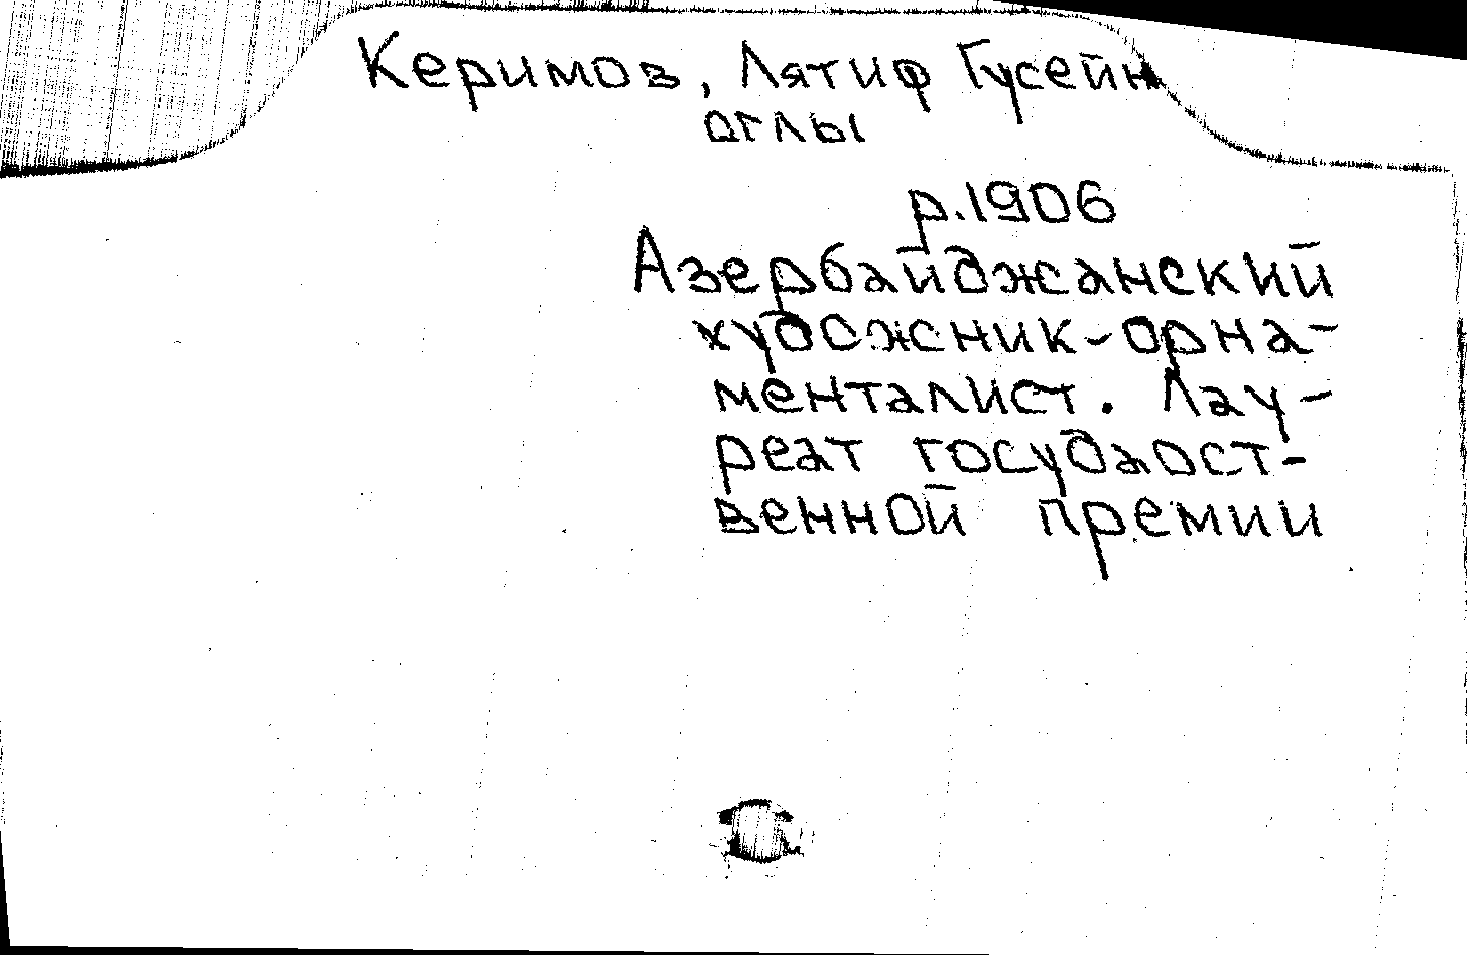 Керимов, Лятиф Гусейн
оглы
р.1906
Азербайджанский
художник-орна-
менталист. Лау-
реат госудаост-
венной премии